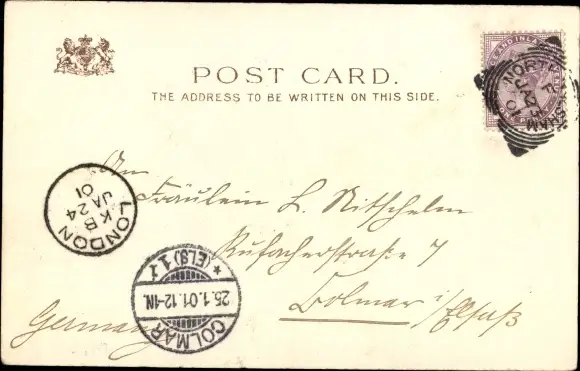 POST CARD.
THE ADDRESS TO BE WRITTEN ON THIS SIDE.
An
Fräulein L. Nitschelm
Rufacherstraße 7
Colmar i/Elsaß
Germany
LONDON
K B
JA 24
01
COLMAR
25.1.01.12-1N.
* (ELS) 1 1
NORTH
F
JA 23
01